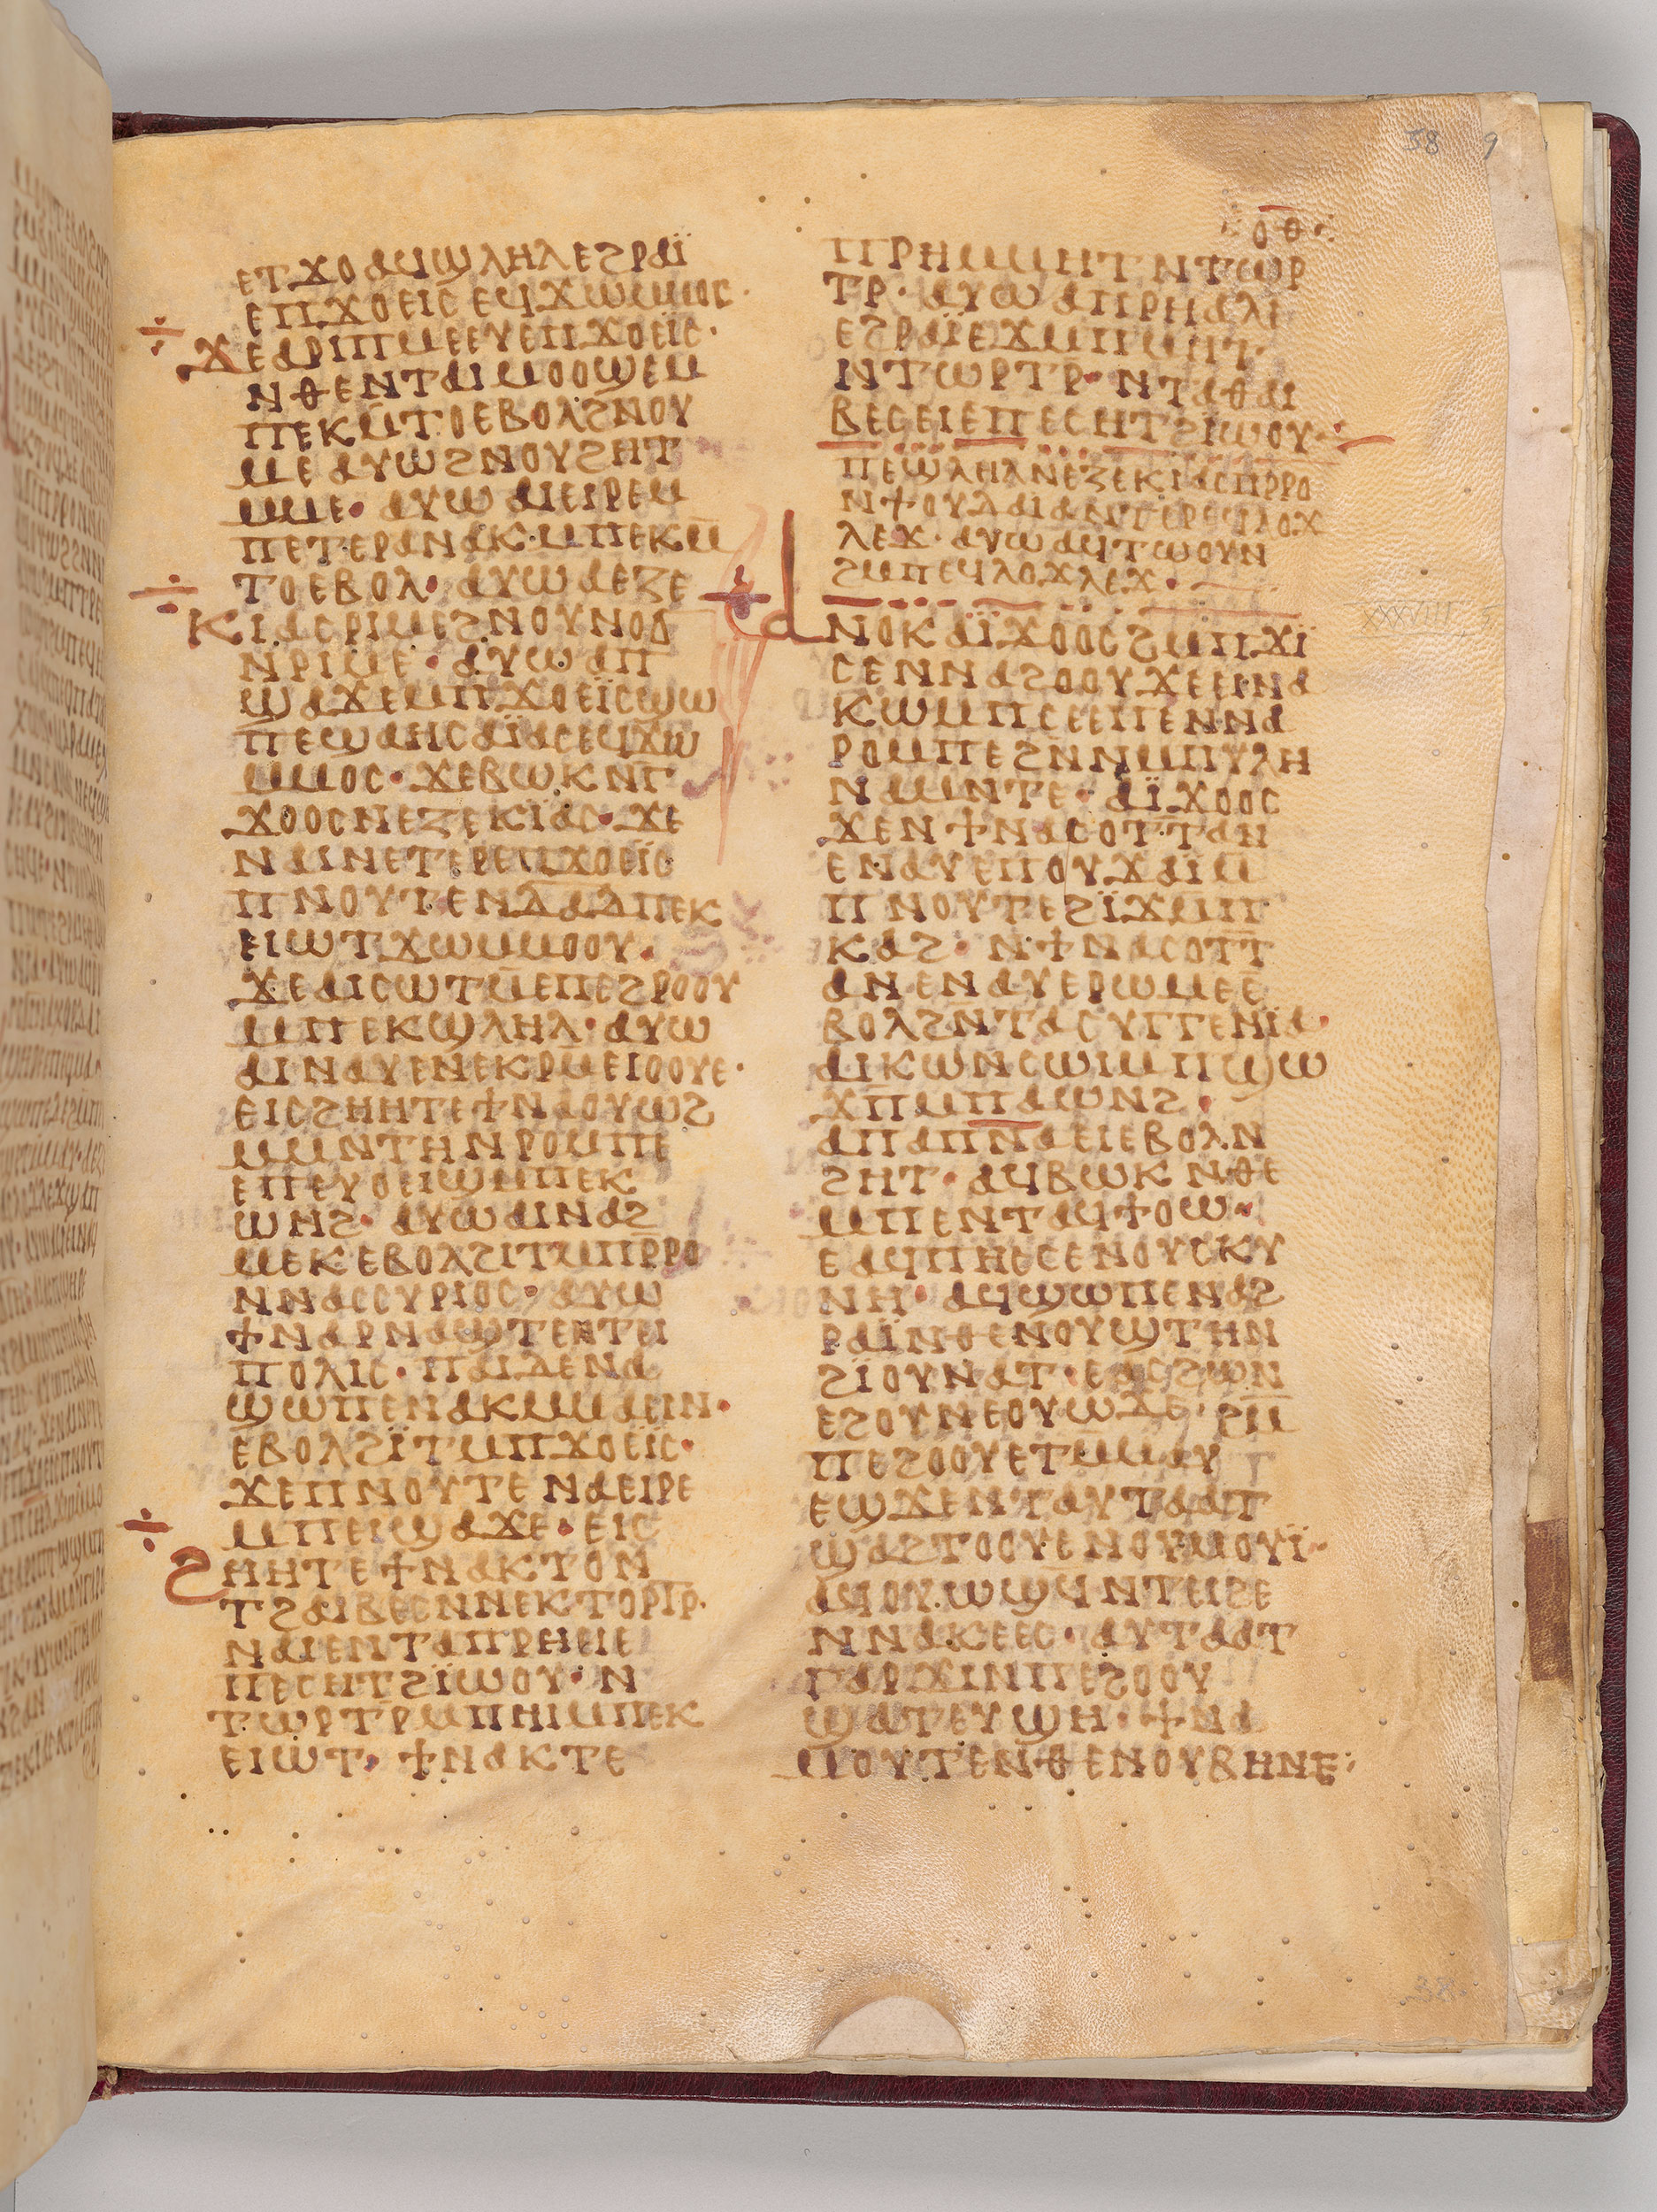 38 9
ⲟⲑ
ⲉⲧϫⲟ ⲁϥϣⲗⲏⲗ ⲉϩⲣⲁⲓ̈
ⲉⲡϫⲟⲉⲓⲥ ⲉϥϫⲱⲙⲙⲟⲥ·
ϫⲉⲁⲣⲓⲡⲙⲉⲉⲩⲉ ⲡϫⲟⲉⲓ̈ⲥ·
ⲛⲑⲉ ⲛⲧⲁⲓⲙⲟⲟϣⲉ ⲙ
ⲡⲉⲕⲙ̄ⲧⲟ ⲉⲃⲟⲗ ϩⲛⲟⲩ
ⲙⲉ ⲁⲩⲱ ϩⲛⲟⲩϩⲏⲧ
ⲙⲙⲉ· ⲁⲩⲱ ⲁⲓⲉⲓⲣⲉ ⲙ
ⲡⲉⲧⲉⲣⲁⲛⲁⲕ ⲙⲡⲉⲕⲙ̄
ⲧⲟ ⲉⲃⲟⲗ· ⲁⲩⲱ ⲁⲉⲍⲉ
ⲕⲓⲁⲥ ⲣⲓⲙⲉ ϩⲛⲟⲩⲛⲟϭ
ⲛ̄ⲣⲓⲙⲉ· ⲁⲩⲱ ⲁⲡ
ϣⲁϫⲉ ⲙⲡϫⲟⲉⲓ̈ⲥ ϣⲱ
ⲡⲉ ϣⲁ ⲏⲥⲁⲓ̈ⲁⲥ ⲉϥϫⲱ
ⲙⲙⲟⲥ· ϫⲉⲃⲱⲕ ⲛⲅ
ϫⲟⲟⲥ ⲛⲉⲍⲉⲕⲓ̈ⲁⲥ· ϫⲉ
ⲛⲁⲓ ⲛⲉⲧⲉⲣⲉⲡϫⲟⲉⲓ̈ⲥ
ⲡⲛⲟⲩⲧⲉ ⲛⲇⲁⲇ ⲡⲉⲕ
ⲉⲓⲱⲧ ϫⲱ ⲙⲙⲟⲟⲩ·
ϫⲉⲁⲓⲥⲱⲧⲙ̄ ⲉⲡⲉϩⲣⲟⲟⲩ
ⲙⲡⲉⲕϣⲗⲏⲗ· ⲁⲩⲱ
ⲁⲓⲛⲁⲩ ⲉⲛⲉⲕⲣⲙⲉⲓⲟⲟⲩⲉ·
ⲉⲓⲥϩⲏⲏⲧⲉ ϯⲛⲁⲟⲩⲱϩ
ⲙⲙⲛⲧⲏ ⲛⲣⲟⲙⲡⲉ
ⲉⲡⲉⲩⲟⲉⲓϣ ⲙⲡⲉⲕ
ⲱⲛϩ· ⲁⲩⲱ ϯⲛⲁϩ
ⲙⲉⲕ ⲉⲃⲟⲗϩⲓⲧⲙ ⲡⲣ̄ⲣⲟ
ⲛⲛⲁⲥⲥⲩⲣⲓⲟⲥ· ⲁⲩⲱ
ϯⲛⲁⲣⲛⲁϣⲧⲉ ⲛⲧⲉⲓ
ⲡⲟⲗⲓⲥ· ⲡⲁⲓ ⲇⲉ ⲛⲁ
ϣⲱⲡⲉ ⲛⲁⲕ ⲙⲙⲁⲉⲓⲛ·
ⲉⲃⲟⲗϩⲓ̈ⲧⲙ ⲡϫⲟⲉⲓ̈ⲥ·
ϫⲉⲡⲛⲟⲩⲧⲉ ⲛⲁⲉⲓⲣⲉ
ⲙⲡⲉⲓϣⲁϫⲉ· ⲉⲓⲥ
ϩⲏⲏⲧⲉ ϯⲛⲁⲕⲧⲟ ⲛ
ⲧϩⲁⲓⲃⲉⲥ ⲛⲛⲉⲕⲧⲟⲣⲧⲣ̄·
ⲛⲁⲓ ⲉⲛⲧⲁⲡⲣⲏ ⲉⲓ ⲉ
ⲡⲉⲥⲏⲧ ϩⲓ̈ⲱⲟⲩ· ⲛ
ⲧⲱⲣⲧⲣ ⲙⲡⲏⲓ ⲙⲡⲉⲕ
ⲉⲓⲱⲧ· ϯⲛⲁⲕⲧⲉ
ⲡⲣⲏ ⲙⲙⲏⲧ ⲛⲧⲱⲣ
ⲧⲣ· ⲁⲩⲱ ⲁⲡⲣⲏ ⲁⲗⲉ
ⲉϩⲣⲁⲓ̈ ⲉϫⲙ ⲡⲙⲏⲧ
ⲛⲧⲱⲣⲧⲣ· ⲛⲧⲁⲑⲁⲓ
ⲃⲉⲥ ⲉⲓ ⲉⲡⲉⲥⲏⲧ ϩⲓ̈ⲱⲟⲩ·
ⲡⲉϣⲗⲏⲗ ⲛⲉⲍⲉⲕⲓⲁⲥ ⲡⲣⲣⲟ
ⲛϯⲟⲩⲇⲁⲓⲁ ⲛⲧⲉⲣⲉϥⲗⲟϫ
ⲗⲉϫ· ⲁⲩⲱ ⲁϥⲧⲱⲟⲩⲛ
ϩⲙ ⲡⲉϥⲗⲟϫⲗⲉϫ·
ⲁⲛⲟⲕ ⲁⲓ̈ϫⲟⲟⲥ ϩⲙ ⲡϫⲓ̈
ⲥⲉ ⲛⲛⲁϩⲟⲟⲩ ϫⲉⲉⲓⲛⲁ
ⲕⲱ ⲙⲡⲥⲉⲉⲡⲉ ⲛⲛⲁ
ⲣⲟⲙⲡⲉ ϩⲛ ⲛⲙⲡⲩⲗⲏ
ⲛⲁⲙⲛⲧⲉ· ⲁⲓ̈ϫⲟⲟⲥ
ϫⲉⲛϯⲛⲁⲥⲟⲧⲧ ⲁⲛ
ⲉⲛⲁⲩ ⲉⲡⲟⲩϫⲁⲓ̈ ⲙ
ⲡⲛⲟⲩⲧⲉ ϩⲓ̈ϫⲙ ⲡ
ⲕⲁϩ· ⲛϯⲛⲁⲥⲟⲧⲧ
ⲁⲛ ⲉⲛⲁⲩ ⲉⲣⲱⲙⲉ ⲉ
ⲃⲟⲗϩⲛ ⲧⲁⲥⲩⲅⲅⲉⲛⲓ̈ⲁ·
ⲁⲓⲕⲱ ⲛⲥⲱⲓ ⲙⲡϣⲱ
ϫⲡ ⲙⲡⲁⲱⲛϩ·
ⲁⲡⲁⲡⲛⲁ ⲉⲓ ⲉⲃⲟⲗ ⲛ
ϩⲏⲧ· ⲁϥⲃⲱⲕ ⲛⲑⲉ
ⲙⲡⲉⲛⲧⲁϥϯⲟⲩⲱ·
ⲉⲁϥⲡⲏⲥⲥⲉ ⲛⲟⲩⲥⲕⲩ
ⲛⲏ· ⲁϥϣⲱⲡⲉ ⲛⲁϩ
ⲣⲁⲓ̈ ⲛⲑⲉ ⲛⲟⲩϣⲧⲏⲛ
ϩⲓ̈ ⲟⲩⲛⲁⲧ· ⲉⲁⲥϩⲱⲛ
ⲉϩⲟⲩⲛ ⲉⲟⲩⲱϭⲉ· ϩⲙ
ⲡⲉϩⲟⲟⲩ ⲉⲧⲙⲙⲁⲩ
ⲉϣϫⲉ ⲛⲧⲁⲩⲧⲁⲁⲧ
ϣⲁϩⲧⲟⲟⲩⲉ ⲛⲟⲩⲙⲟⲩⲓ̈·
ⲁϥⲟⲩⲱϣϥ ⲛⲧⲉⲓϩⲉ
ⲛⲛⲁⲕⲉⲉⲥ· ⲁⲩⲧⲁⲁⲧ
ⲅⲁⲣ ϫⲓⲛ ⲡⲉϩⲟⲟⲩ
ϣⲁ ⲧⲉⲩϣⲏ· ϯⲛⲁ
ⲙⲟⲩⲧⲉ ⲛⲑⲉ ⲛⲟⲩⲃⲏⲛⲉ·
XXXVIII 5
38